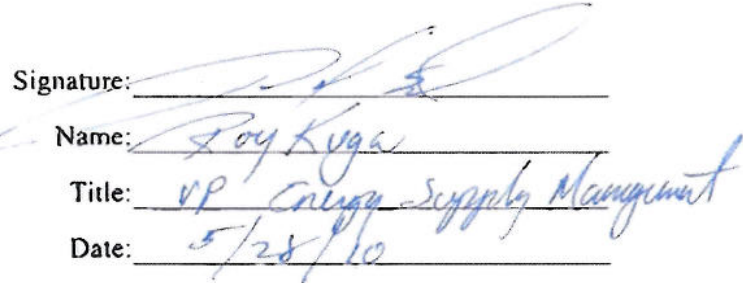 Signature:
Name: Roy Kuga
Title: VP Energy Supply Management
Date: 5/28/10